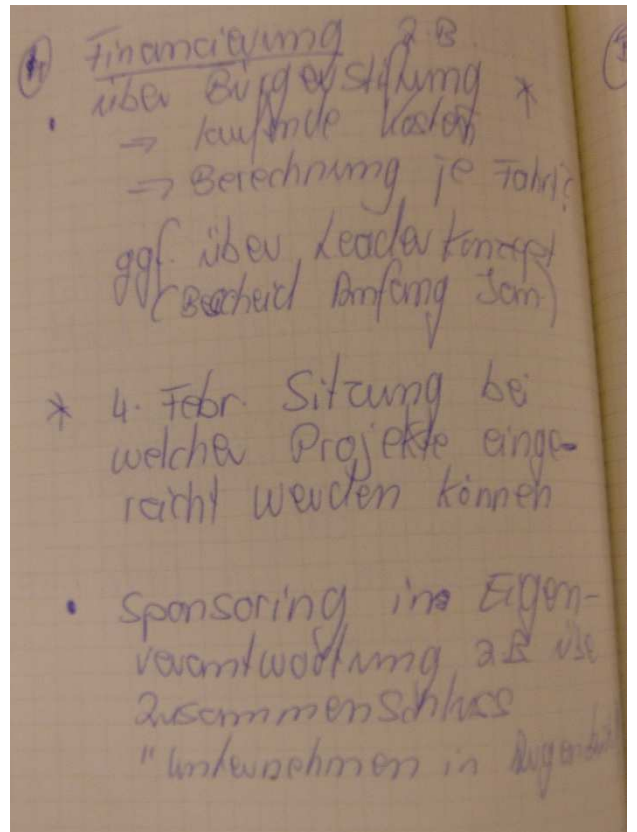 Finanzierung z.B.
über Bürgerstiftung *
• → laufende Kosten
→ Berechnung je Fahrt
ggf. über Leaderkonzept
(Bescheid Anfang Jan.)
* 4. Febr. Sitzung bei
welcher Projekte einge-
reicht werden können
• Sponsoring in Eigen-
verantwortung z.B.
Zusammenschluss
"Unternehmen in